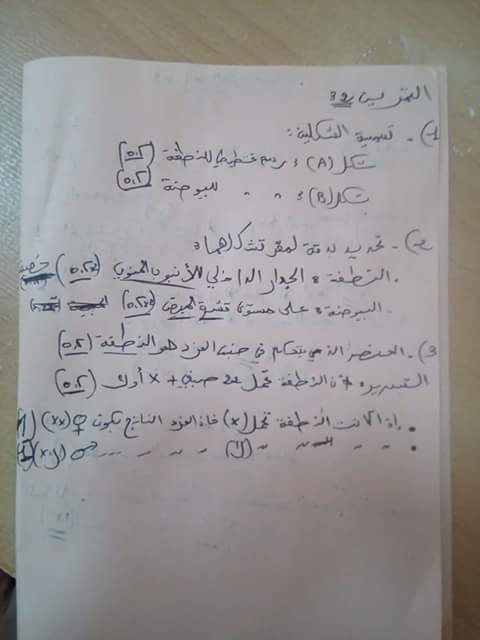 التمرين 32
1)- تسمية الشكلين:
شكل (A): رسم تخطيطي للنطفة (0.5)
شكل (B): " " للبويضة (0.5)
2)- تحديد بدقة لمقر تشكلهما:
. النطفة: الجدار الداخلي للأنبوب المنوي (0.25)
. البويضة: على مستوى قشرة المبيض (0.25)
3)- العنصر الذي يتحكم في جنس الفرد هو النطفة (0.5)
التفسير: لأن النطفة تحمل 22 صبغي + X أو y (0.5)
. إذا كانت النطفة تحمل (X) فإن الفرد الناتج يكون ♀ (XX)
. " " " (y) " " " " ♂ (X y)